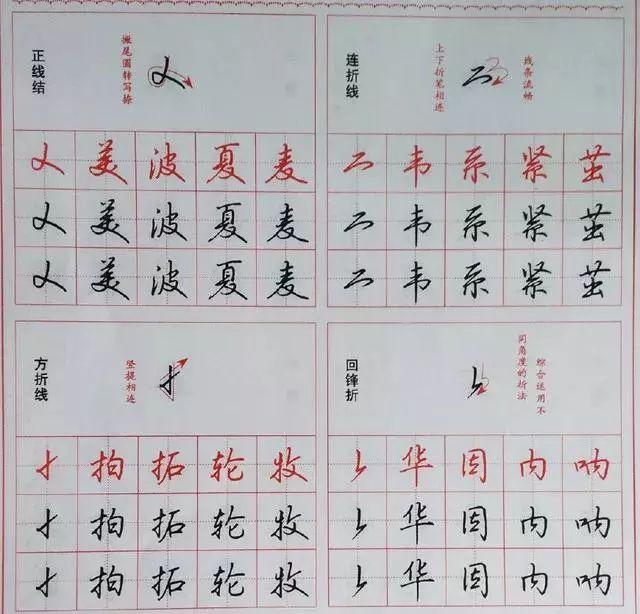 正线结
搬尾圆转写捺
美波夏麦
美波夏麦
美波夏麦
连折线
上下折笔相连
线条流畅
韦系紧茧
韦系紧茧
韦系紧茧
方折线
竖提相连
拍拓轮牧
拍拓轮牧
拍拓轮牧
回锋折
综合运用不
同角度的折法
华因内呐
华因内呐
华因内呐